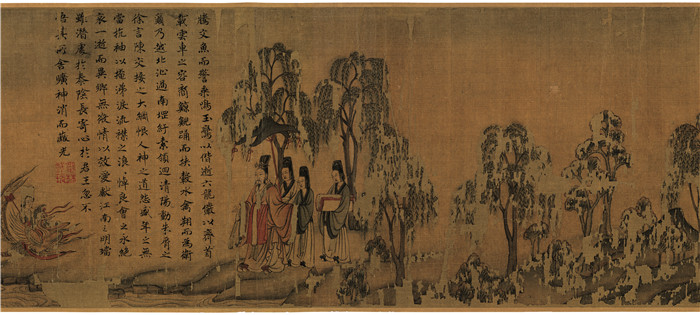 騰文魚而警乘鳴玉鸞以偕逝六龍儼以齊首
載雲車之容裔鯨鯢踊而挾轂水禽翔而為衛
爾乃越北沚過南堽紆素領迴清陽動朱脣之
徐言陳交接之大綱恨人神之道怨盛年之無
當抗袖以掩涕淚流襟之浪〻悼良會之永絕
哀一逝而異鄉無微情以效愛獻江南之明璫
雖潛處於泰陰長寄心於君王忽不
悟其所舍曠神消而蔽光